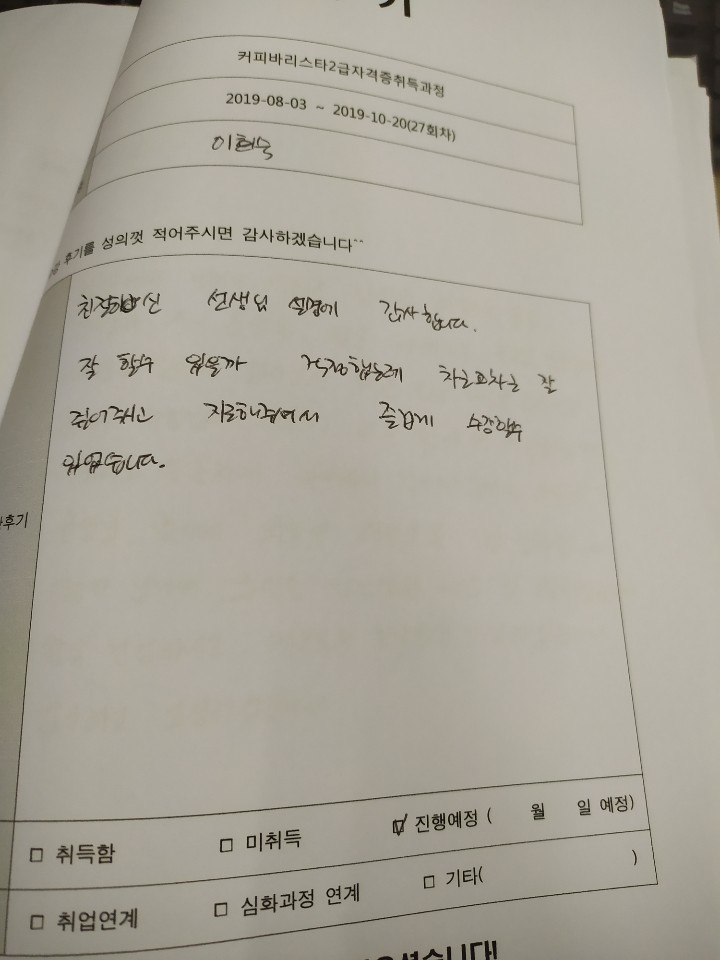 기
커피바리스타2급자격증취득과정
2019-08-03 ~ 2019-10-20(27회차)
이현숙
후기를 성의껏 적어주시면 감사하겠습니다^^
친절하신 선생님 설명에 감사합니다.
잘 할수 있을까 걱정했는데 차근차근 잘
집어주시고 지도해주셔서 즐겁게 수강할수
있었습니다.
후기
□ 취득함 □ 미취득 ☑ 진행예정 ( 월 일 예정)
□ 취업연계 □ 심화과정 연계 □ 기타( )